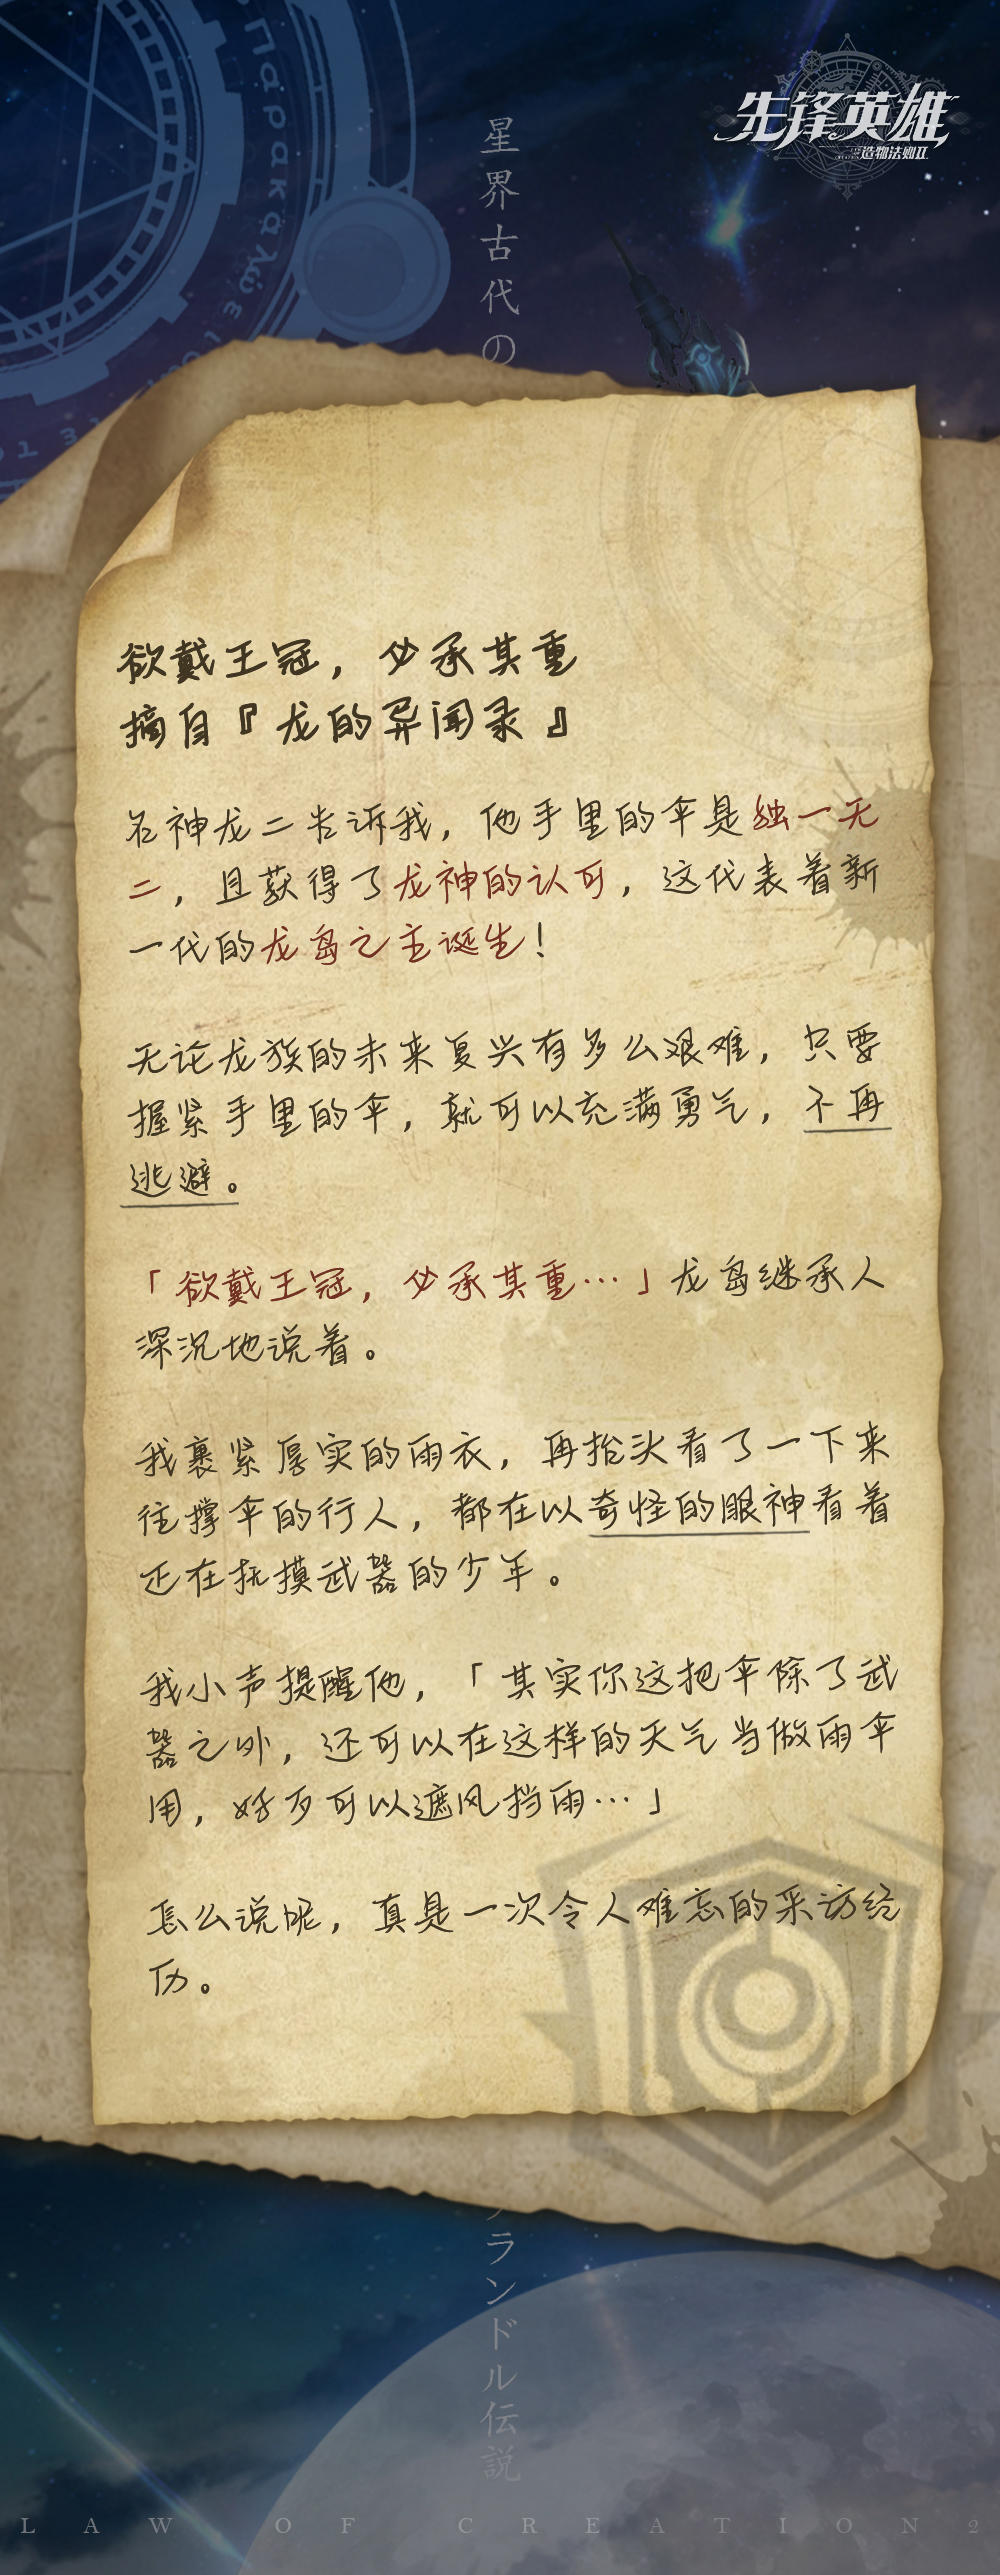 先锋英雄
造物法则II
παρακαλώ ε
星界古代の
欲戴王冠，必承其重
摘自『龙的异闻录』
名神龙二告诉我，他手里的伞是独一无
二，且获得了龙神的认可，这代表着新
一代的龙岛之主诞生！
无论龙族的未来复兴有多么艰难，只要
握紧手里的伞，就可以充满勇气，不再
逃避。
「欲戴王冠，必承其重…」龙岛继承人
深沉地说着。
我裹紧厚实的雨衣，再抬头看了一下来
往撑伞的行人，都在以奇怪的眼神看着
正在抚摸武器的少年。
我小声提醒他，「其实你这把伞除了武
器之外，还可以在这样的天气当做雨伞
用，好歹可以遮风挡雨…」
怎么说呢，真是一次令人难忘的采访经
历。
ランドル伝説
LAW OF CREATION2